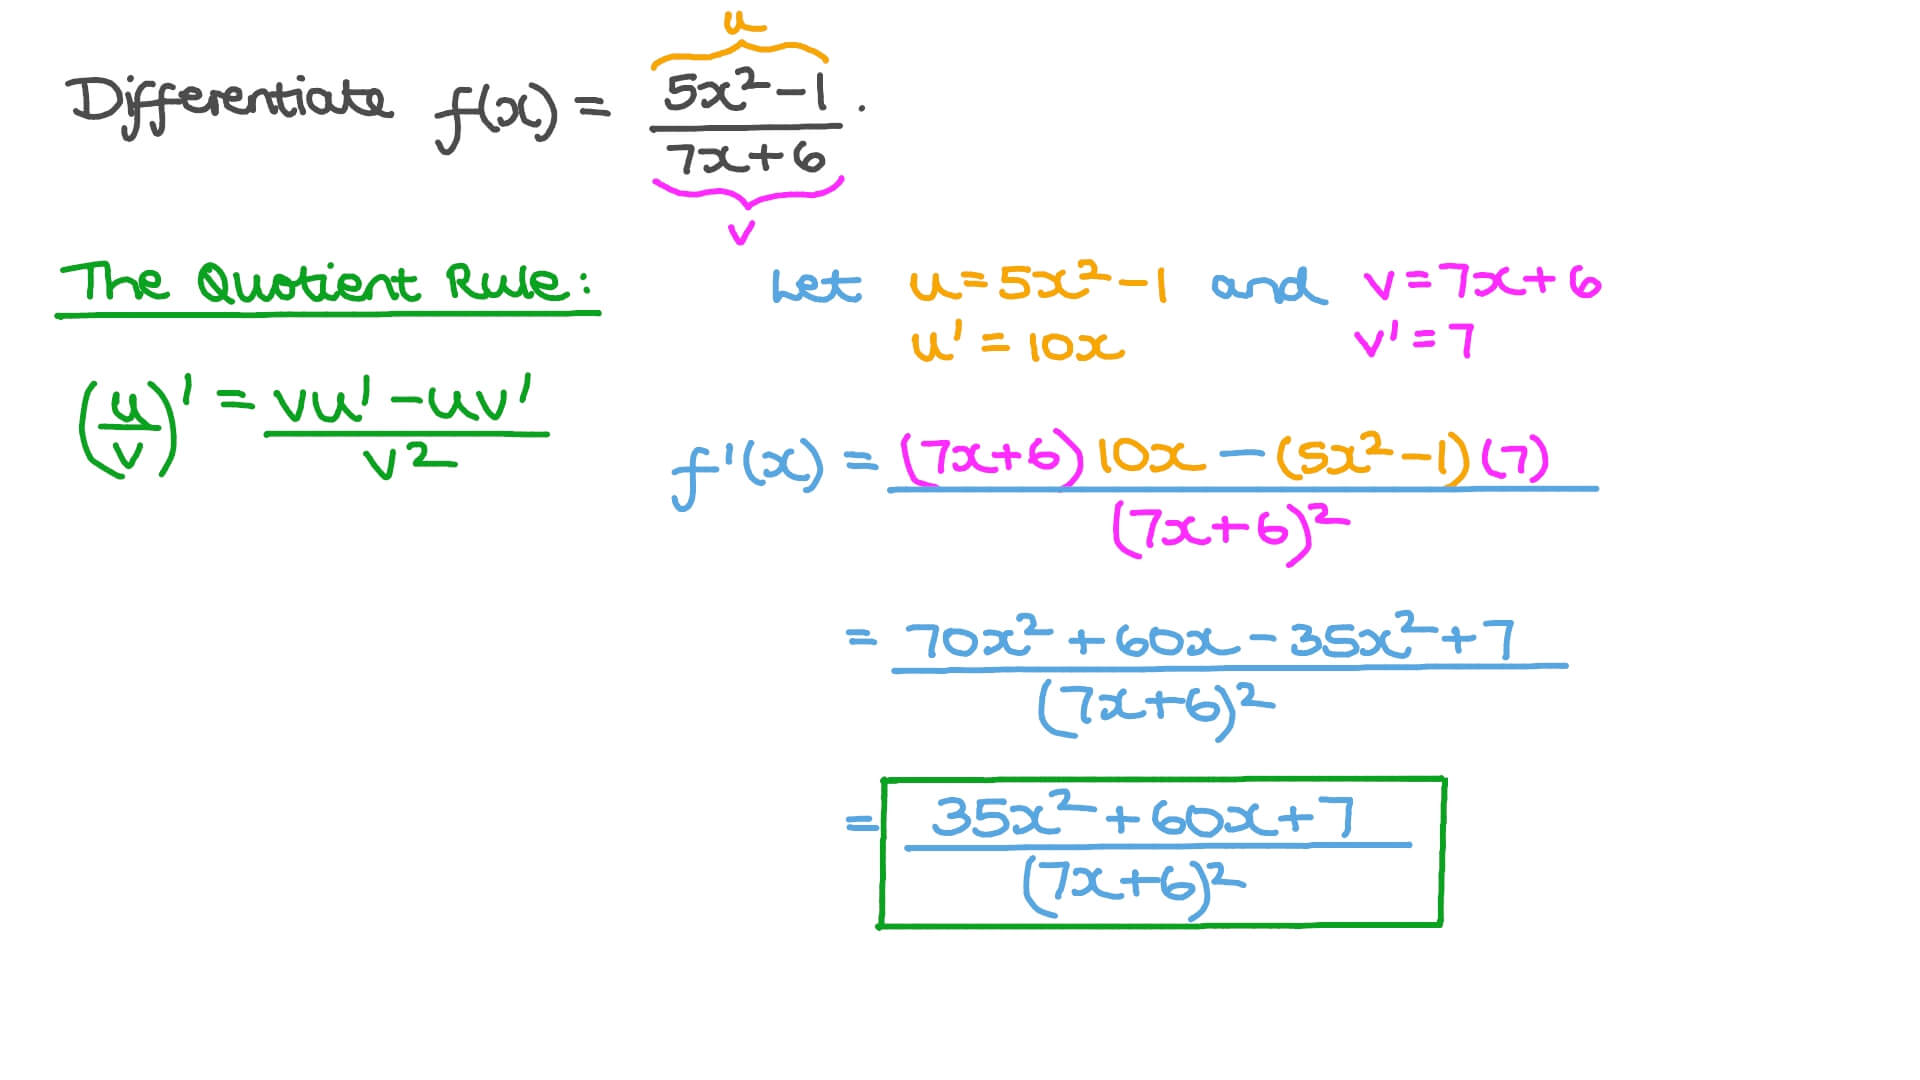 u
Differentiate f(x) = (5x² - 1)/(7x + 6).
v
The Quotient Rule:
Let u = 5x² - 1 and v = 7x + 6
u' = 10x v' = 7
(u/v)' = (vu' - uv')/v²
f'(x) = ((7x+6)10x - (5x² - 1)(7))/(7x+6)²
= (70x² + 60x - 35x² + 7)/(7x+6)²
= (35x² + 60x + 7)/(7x+6)²